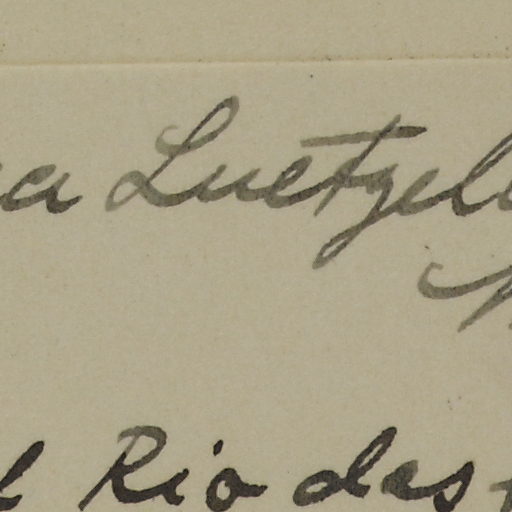 a Luetzel
Rio das